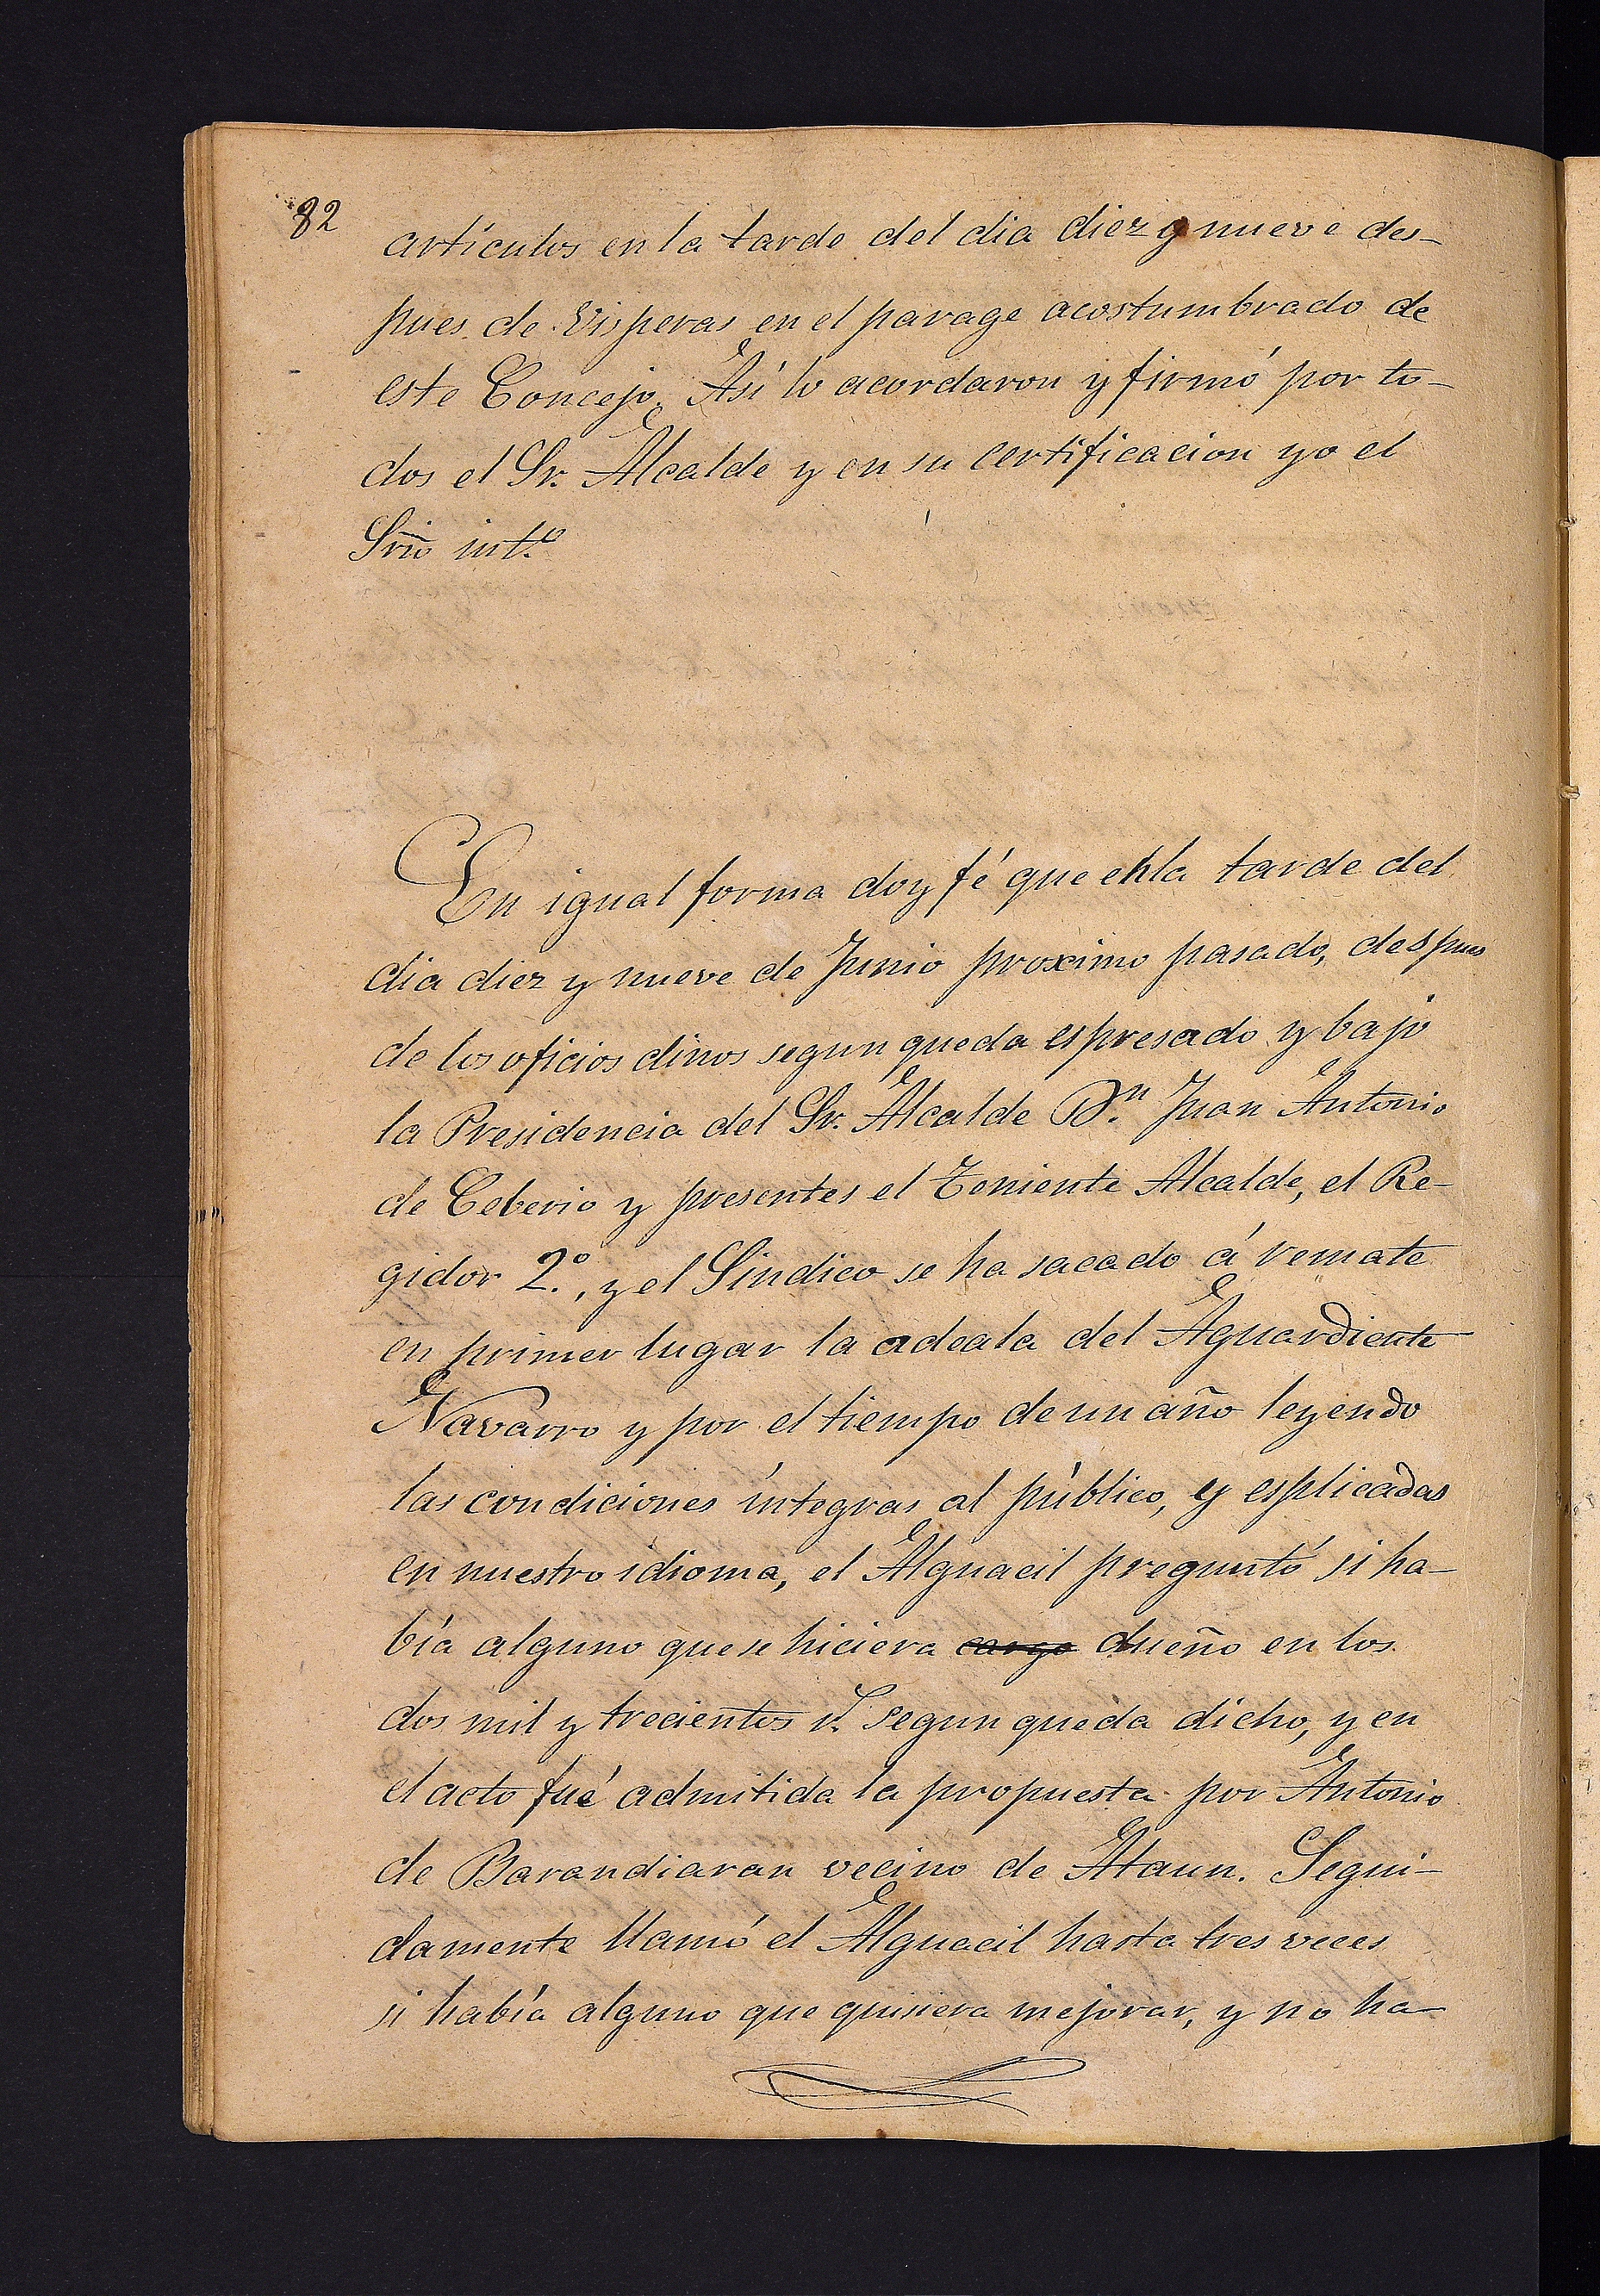 82
artículos en la tarde del dia diez y nueve des-
pues de Visperas en el parage acostumbrado de
este Concejo. Así lo acordaron y firmó por to-
dos el Sr. Alcalde y en su certificacion yo el
Srio int.º
En igual forma doy fé que en la tarde del
dia diez y nueve de Junio proximo pasado, despues
de los oficios dinos segun queda espresado y bajo
la Presidencia del Sr. Alcalde D.n Juan Antonio
de Ceberio y presentes el Teniente Alcalde, el Re-
gidor 2.º, y el Sindico se ha sacado á remate
en primer lugar la adeala del Aguardiente
Navarro y por el tiempo de un año leyendo
las condiciones íntegras al público, y esplicadas
en nuestro idioma, el Alguacil preguntó si ha-
bía alguno que se hiciera cargo dueño en los
dos mil y trecientos r.s segun queda dicho, y en
el acto fué admitida la propuesta por Antonio
de Barandiaran vecino de Ataun. Segui-
damente llamó el Alguacil hasta tres veces
si había alguno que quisiera mejorar, y no ha-